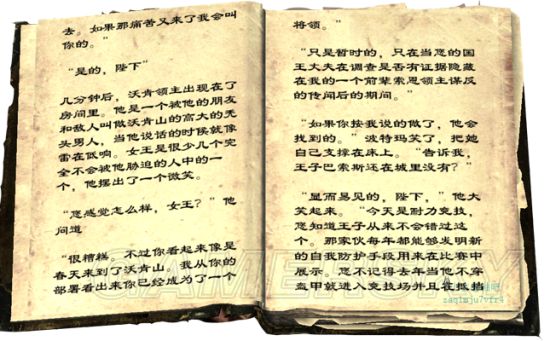 去。如果那痛苦又来了我会叫
你的。”
“是的，陛下”
几分钟后，沃肯领主出现在了
房间里。他是一个被他的朋友
和敌人叫做沃肯山的高大的无
头男人，当他说话的时候就像
雷在低响。女王是很少几个完
全不会被他胁迫的人中的一
个，他摆出了一个微笑。
“您感觉怎么样，女王？”他
问道
“很糟糕。不过你看起来像是
春天来到了沃肯山。我从你的
部署看出来你已经成为了一个
将领。”
“只是暂时的，只在当您的国
王丈夫在调查是否有证据隐藏
在我的一个前辈索恩领主谋反
的传闻后的期间。”
“如果你按我说的做了，他会
找到的。”波特玛笑了，把她
自己支撑在床上。“告诉我，
王子巴索斯还在城里没有？”
“显而易见的，陛下，”他大
笑起来。“今天是耐力竞技，
您知道王子从来不会错过这
个。那家伙每年都能够发明新
的自我防护手段用来在比赛中
展示。您不记得去年当他不穿
盔甲就进入竞技场并且在抵挡
zaqtmju7vfr4